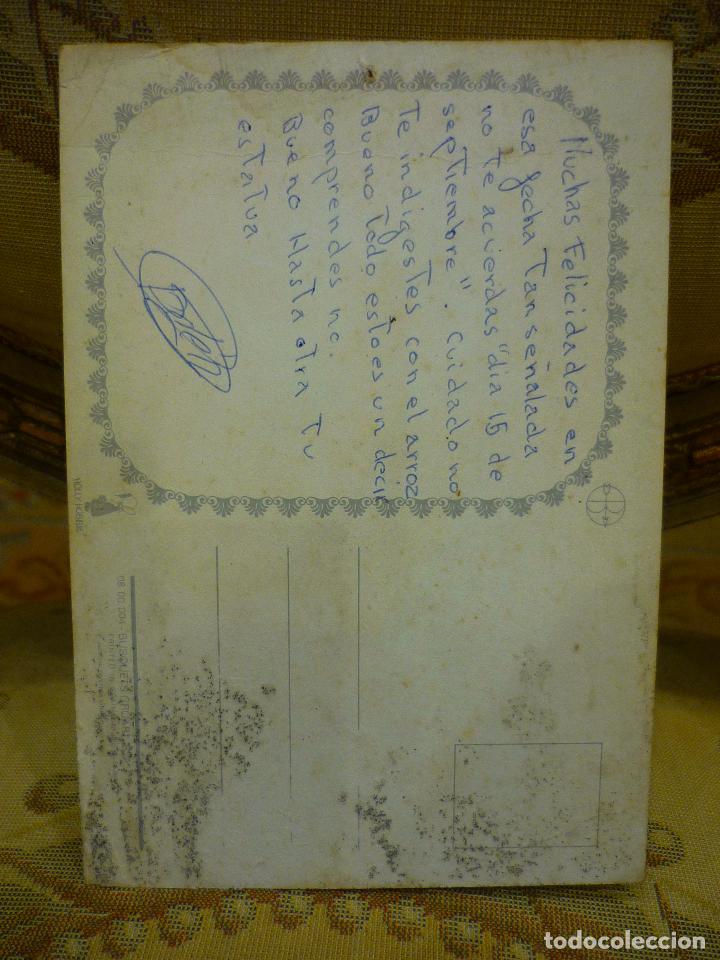 Muchas Felicidades en
esa fecha Tan señalada
no te acuerdas "dia 15 de
septiembre". Cuidado no
Te indigestes con el arroz
Bueno Todo esto es un decir
comprendes no.
Bueno Hasta otra Tu
estatua
HOLLY HOBBIE
todocoleccion.net